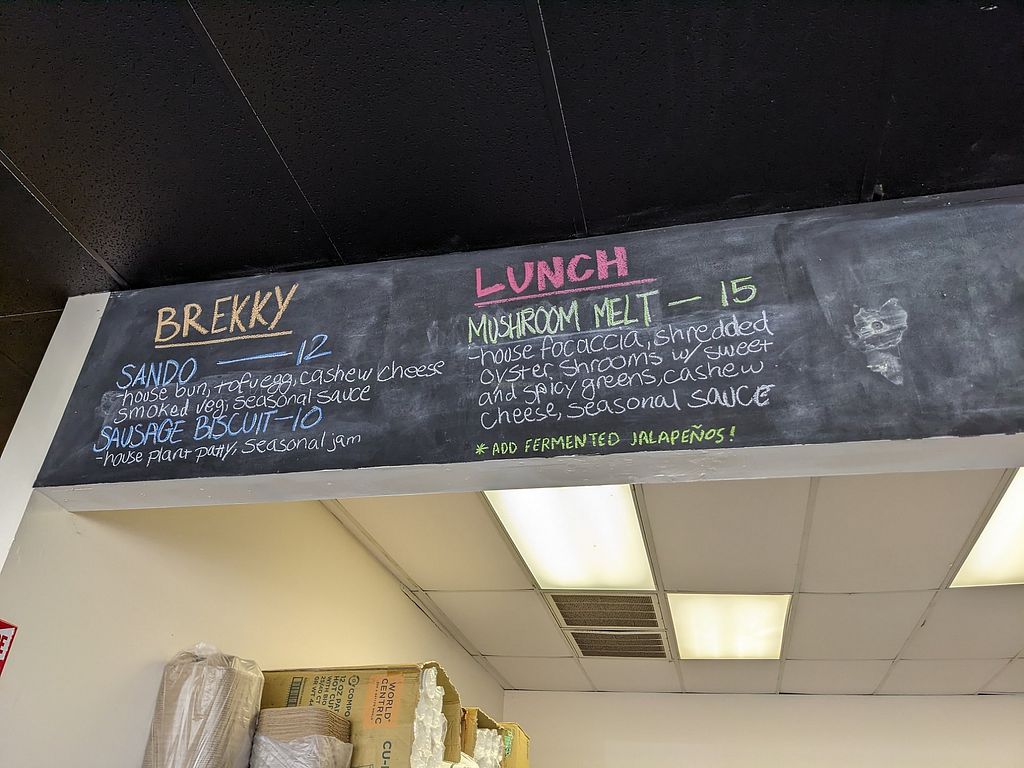 BREKKY
SANDO — 12
-house bun, tofu egg, cashew cheese
smoked veg, seasonal sauce
SAUSAGE BISCUIT-10
-house plant patty, seasonal jam
LUNCH
MUSHROOM MELT — 15
-house focaccia, shredded
oyster shrooms w/ sweet
and spicy greens, cashew
cheese, seasonal sauce
* ADD FERMENTED JALAPEÑOS!
WORLD
CENTRIC
12 OZ PA
HOT CUP